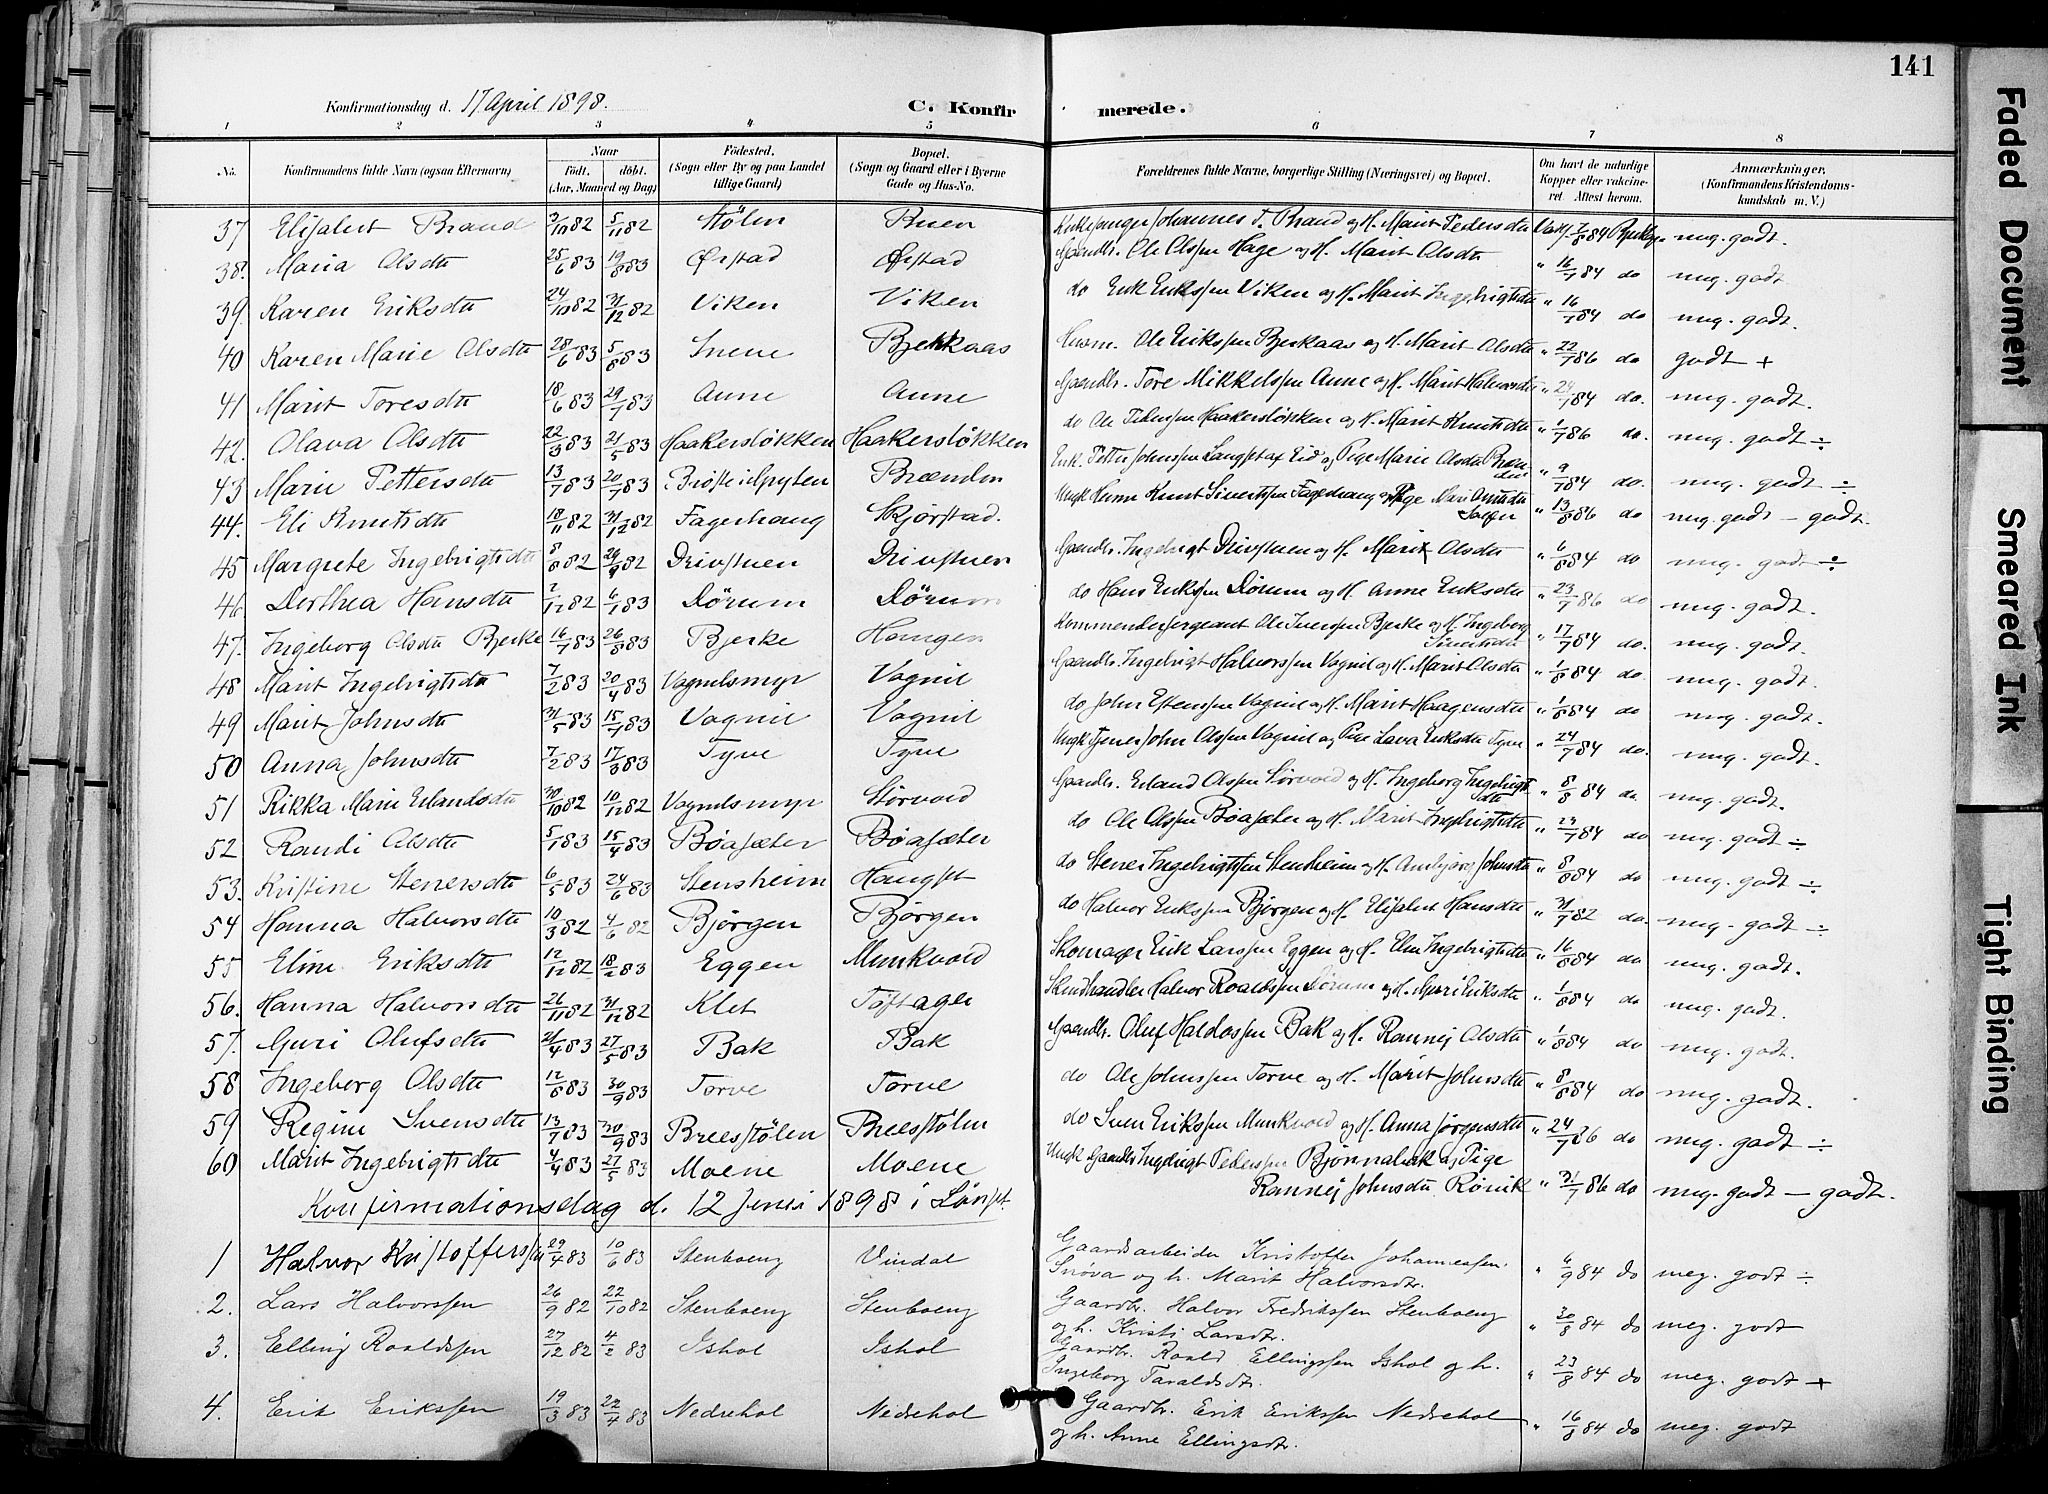 141
Konfirmationsdag d. 17 April 1898.
C. Konfirmerede.
1 2 3 4 5 6 7 8
No. Konfirmandens fulde Navn (ogsaa Efternavn) Naar Født. døbt. (Aar, Maaned og Dag) Fødested. (Sogn eller By og paa Landet tillige Gaard) Bopæl. (Sogn og Gaard eller i Byerne Gade og Hus-No.) Forældrenes fulde Navne, borgerlige Stilling (Næringsvei) og Bopæl. Om havt de naturlige Kopper eller vakcineret. Attest herom. Anmærkninger. (Konfirmandens Kristendomskundskab m. V.)
37 Elisabet Brand 3/10 82 5/11 82 Stölen Buen Johannes T. Brand og H. Marit Pedersdtr Vac. 7/8 84 meg. godt.
38. Maria Olsdtr 25/6 83 19/8 83 Ørstad Ørstad Gaardbr. Ole Olssen Hage og H. Marit Olsdtr " 16/7 84 do meg. godt
39. Karen Eriksdtr 24/10 82 31/12 82 Viken Viken do Erik Erikssen Viken og H. Marit Ingebrigtsdtr " 16/7 84 do meg. godt.
40 Karen Marie Olsdtr 28/6 83 5/8 83 Snene Bjerkaas Husm. Ole Erikssen Bjerkaas og H. Marit Olsdtr " 22/7 86 do godt +
41 Marit Toresdtr 18/6 83 29/7 83 Aune Aune Gaardbr. Tore Mikkelssen Aune og H. Marit Halvorsdtr " 24/7 84 do. meg. godt.
42. Olava Olsdtr 22/3 83 21/5 83 Haakersløkken Haakersløkken do Ole Pederssen Haakersløkken og H. Marit Knutsdtr " 1/7 86 do. meg. godt ÷
43 Marie Pettersdtr 13/7 83 20/7 83 Brændm Enk. Petter Johnssen Langset af Eid og Pige Marie Olsdtr " 9/7 84 do. meg. godt ÷
44. Eli Knutsdtr 18/11 82 31/12 82 Fagerhaug Skjørstad. Ungk. Husm Knut Sivertssen Fagerhaug og Pige Mari " 13/8 86 do meg. godt – godt.
45 Margrete Ingebrigtsdtr 8/8 82 24/9 82 Drivstuen Drivstuen Gaardbr. Ingebrigt Drivstuen og H. Marit Olsdtr " 6/8 84 do meg. godt ÷
46. Dorthea Hansdtr 2/12 82 6/1 83 Dörum Dörum do Hans Erikssen Dörum og H. Anne Eriksdtr " 23/7 86 do meg. godt.
47. Ingeborg Olsdtr Bjerke 16/7 83 26/8 83 Bjerke Haugen Kommandersergeant Ole Iverssen Bjerke og H. Ingeborg Sivertsdtr " 17/7 84 do. meg. godt.
48 Marit Ingebrigtsdtr 7/2 83 20/4 83 Vognilsmyr Vognil Gaardbr. Ingebrigt Halvorssen Vognil og H. Marit Olsdtr " 1/8 84 do. meg. godt.
49 Marit Johnsdtr 31/5 83 15/7 83 Vognil Vognil do John Estenssen Vognil og H. Marit Haagensdtr " 1/8 84 do meg. godt.
50 Anna Johnsdtr 7/2 83 17/3 83 Tyve Tyve Ungk Tjener John Olssen Vognil og Pige Lava Eriksdtr Tyve " 24/7 84 do. meg. godt.
51 Rikka Marie Erlandsdtr 30/10 82 10/12 82 Vognilsmyr Störvold Gaardbr. Erland Olssen Störvold og H. Ingeborg Ingebrigtsdtr " 8/8 84 do. meg. godt.
52 Randi Olsdtr 5/1 83 15/4 83 Böasæter Böasæter do Ole Olssen Böasæter og H. Marit Ingebrigtsdtr " 23/7 84 do meg. godt ÷
53. Kristine Stenersdtr 6/5 83 24/6 83 Stensheim Haugset do Stener Ingebrigtssen Stensheim og H. Johnsdtr " 8/8 84 do meg. godt ÷
54 Hanna Halvorsdtr 10/3 82 4/6 82 Bjørgen Bjørgen do Halvor Erikssen Bjørgen og H. Elisabet Hansdtr " 31/7 82 do. meg. godt ÷
55 Eline Eriksdtr 12/12 82 18/2 83 Eggen Munkvold Skomager Erik Larssen Eggen og H. Eli Ingebrigtsdtr " 16/8 84 do meg. godt.
56. Hanna Halvorsdtr 26/11 82 31/12 82 Klet Toftager Skindhandler Halvor Roaldssen Dörum og H. Guri Eriksdtr " 1/8 84 do meg. godt.
57. Guri Olufsdtr 21/4 83 27/5 83 Bak Bak Gaardbr. Oluf Haldossen Bak og H. Rannej Olsdtr " 1/8 84 do meg. godt.
58 Ingeborg Olsdtr 12/8 83 30/9 83 Torve Torve do Ole Johnssen Torve og H. Marit Johnsdtr " 8/8 84 do meg. godt.
59 Regine Svensdtr 13/7 83 30/9 83 Breesstölen Breesstölen do Sven Erikssen Munkvold og H. Anna Jörgensdtr " 24/7 86 do meg. godt ÷
60 Marit Ingebrigtsdtr 4/4 83 27/5 83 Moene Moene Ungk Gaardbr Ingebrigt Pederssen Bjönnabæk og Pige
Rannej Johnsdtr Rönik " 31/7 86 do meg. godt – godt.
Konfirmationsdag d. 12 Juni 1898 i Lönset.
1 Halvor Kristofferssen 29/4 83 10/6 83 Stenboeng Vindal Gaardsarbeider Kristoffer Johannessen
Snöva og h. Marit Halvorsdtr. " 6/9 84 do meg. godt ÷
2. Lars Halvorssen 26/9 82 22/10 82 Stenboeng Stenboeng Gaardbr. Halvor Fredrikssen Stenboeng
og h. Kristi Larsdtr. " 30/8 84 do meg. godt
3. Elling Roaldssen 27/12 82 4/2 83 Ishol Ishol Gaardbr. Roald Ellingssen Ishol og h.
Ingeborg Taraldsdtr. " 23/8 84 do meg. godt +
4. Erik Erikssen 19/3 83 22/4 83 Nedrehol Nedrehol Gaardbr. Erik Erikssen Nedrehol
og h. Anne Ellingsdtr. " 16/8 84 do meg. godt
Faded Document
Smeared Ink
Tight Binding